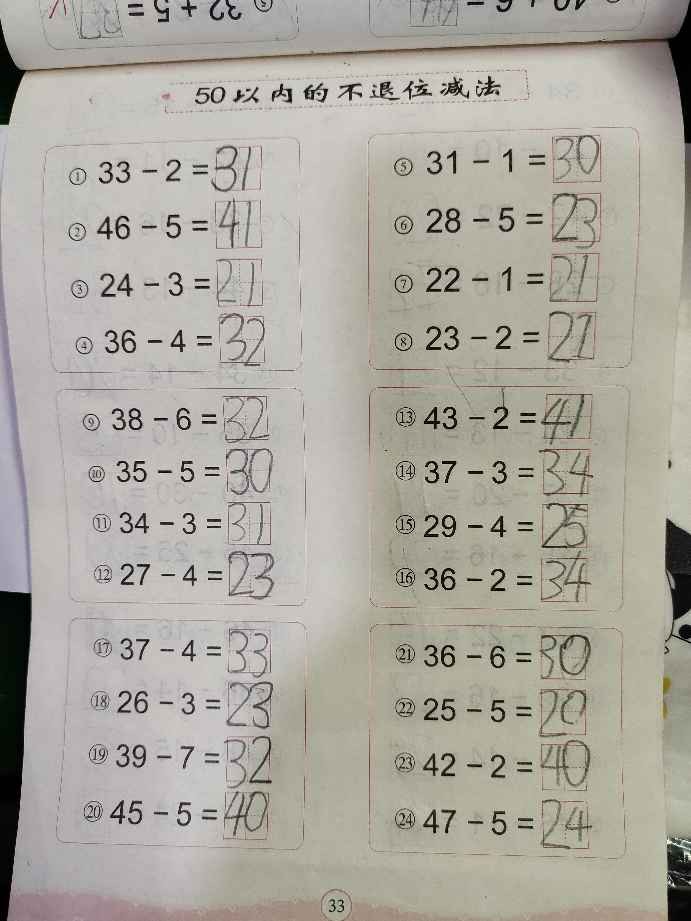 50以内的不退位减法
① 33 − 2 = 31
② 46 − 5 = 41
③ 24 − 3 = 21
④ 36 − 4 = 32
⑤ 31 − 1 = 30
⑥ 28 − 5 = 23
⑦ 22 − 1 = 21
⑧ 23 − 2 = 21
⑨ 38 − 6 = 32
⑩ 35 − 5 = 30
⑪ 34 − 3 = 31
⑫ 27 − 4 = 23
⑬ 43 − 2 = 41
⑭ 37 − 3 = 34
⑮ 29 − 4 = 25
⑯ 36 − 2 = 34
⑰ 37 − 4 = 33
⑱ 26 − 3 = 23
⑲ 39 − 7 = 32
⑳ 45 − 5 = 40
㉑ 36 − 6 = 30
㉒ 25 − 5 = 20
㉓ 42 − 2 = 40
㉔ 47 − 5 = 24
33